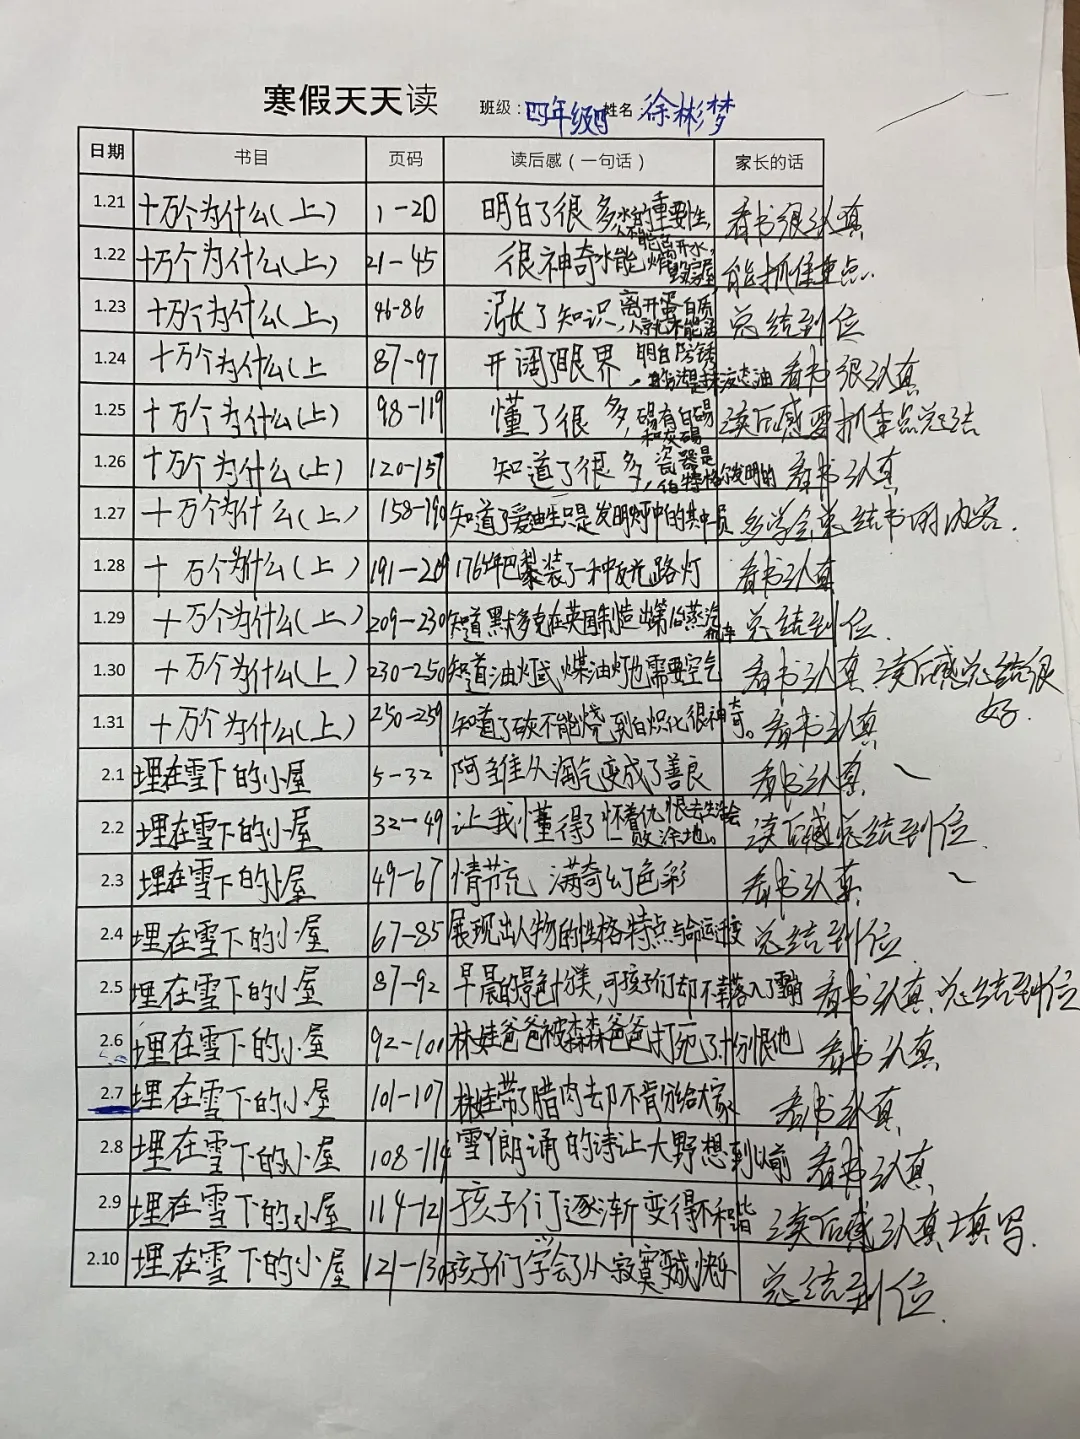 寒假天天读 班级：四年级四 姓名：徐彬梦
日期 书目 页码 读后感（一句话） 家长的话
1.21 十万个为什么(上) 1-20 明白了很多水的重要性， 看书很认真
1.22 十万个为什么(上) 21-45 很神奇水能 能抓住重点.
1.23 十万个为什么(上) 46-86 涨长了知识，离开蛋白质 总结到位
1.24 十万个为什么(上 87-97 开阔了眼界，明白防锈 看书很认真
1.25 十万个为什么(上) 98-119 懂了很多，锡有白锡和灰锡 读后感要抓重点总结
1.26 十万个为什么(上) 120-157 知道了很多，瓷器是伯特格尔发明的 看书认真
1.27 十万个为什么(上) 158-190 知道了爱迪生只是发明灯中的其中一员 多学会总结书内内容.
1.28 十万个为什么(上) 191-209 1765年巴黎装了一种反光路灯 看书认真
1.29 十万个为什么(上) 209-230 知道默多克在英国制造出第一台蒸汽机车 总结到位.
1.30 十万个为什么(上) 230-250 知道油灯或煤油灯也需要空气 看书认真.读后感总结很好.
1.31 十万个为什么(上) 250-259 知道了碳不能烧到白炽化很神奇。 看书认真
2.1 埋在雪下的小屋 5-32 阿维从淘气变成了善良 看书认真
2.2 埋在雪下的小屋 32-49 让我懂得了怀着仇恨去生活会一败涂地。 读后感总结到位.
2.3 埋在雪下的小屋 49-67 情节充满奇幻色彩 看书认真
2.4 埋在雪下的小屋 67-85 展现出人物的性格特点与命运 总结到位.
2.5 埋在雪下的小屋 87-92 早晨的景色十分美，可孩子们却不幸落入了雪崩 看书认真.总结到位
2.6 埋在雪下的小屋 92-101 林娃爸爸被森森爸爸打死了十分恨他 看书认真
2.7 埋在雪下的小屋 101-107 林娃带了腊肉却不肯分给大家 看书认真.
2.8 埋在雪下的小屋 108-114 雪丫朗诵的诗让大野想到以前 看书认真.
2.9 埋在雪下的小屋 114-121 孩子们逐渐变得不和谐 读后感认真填写.
2.10 埋在雪下的小屋 121-130 孩子们学会了从寂寞变成快乐 总结到位.